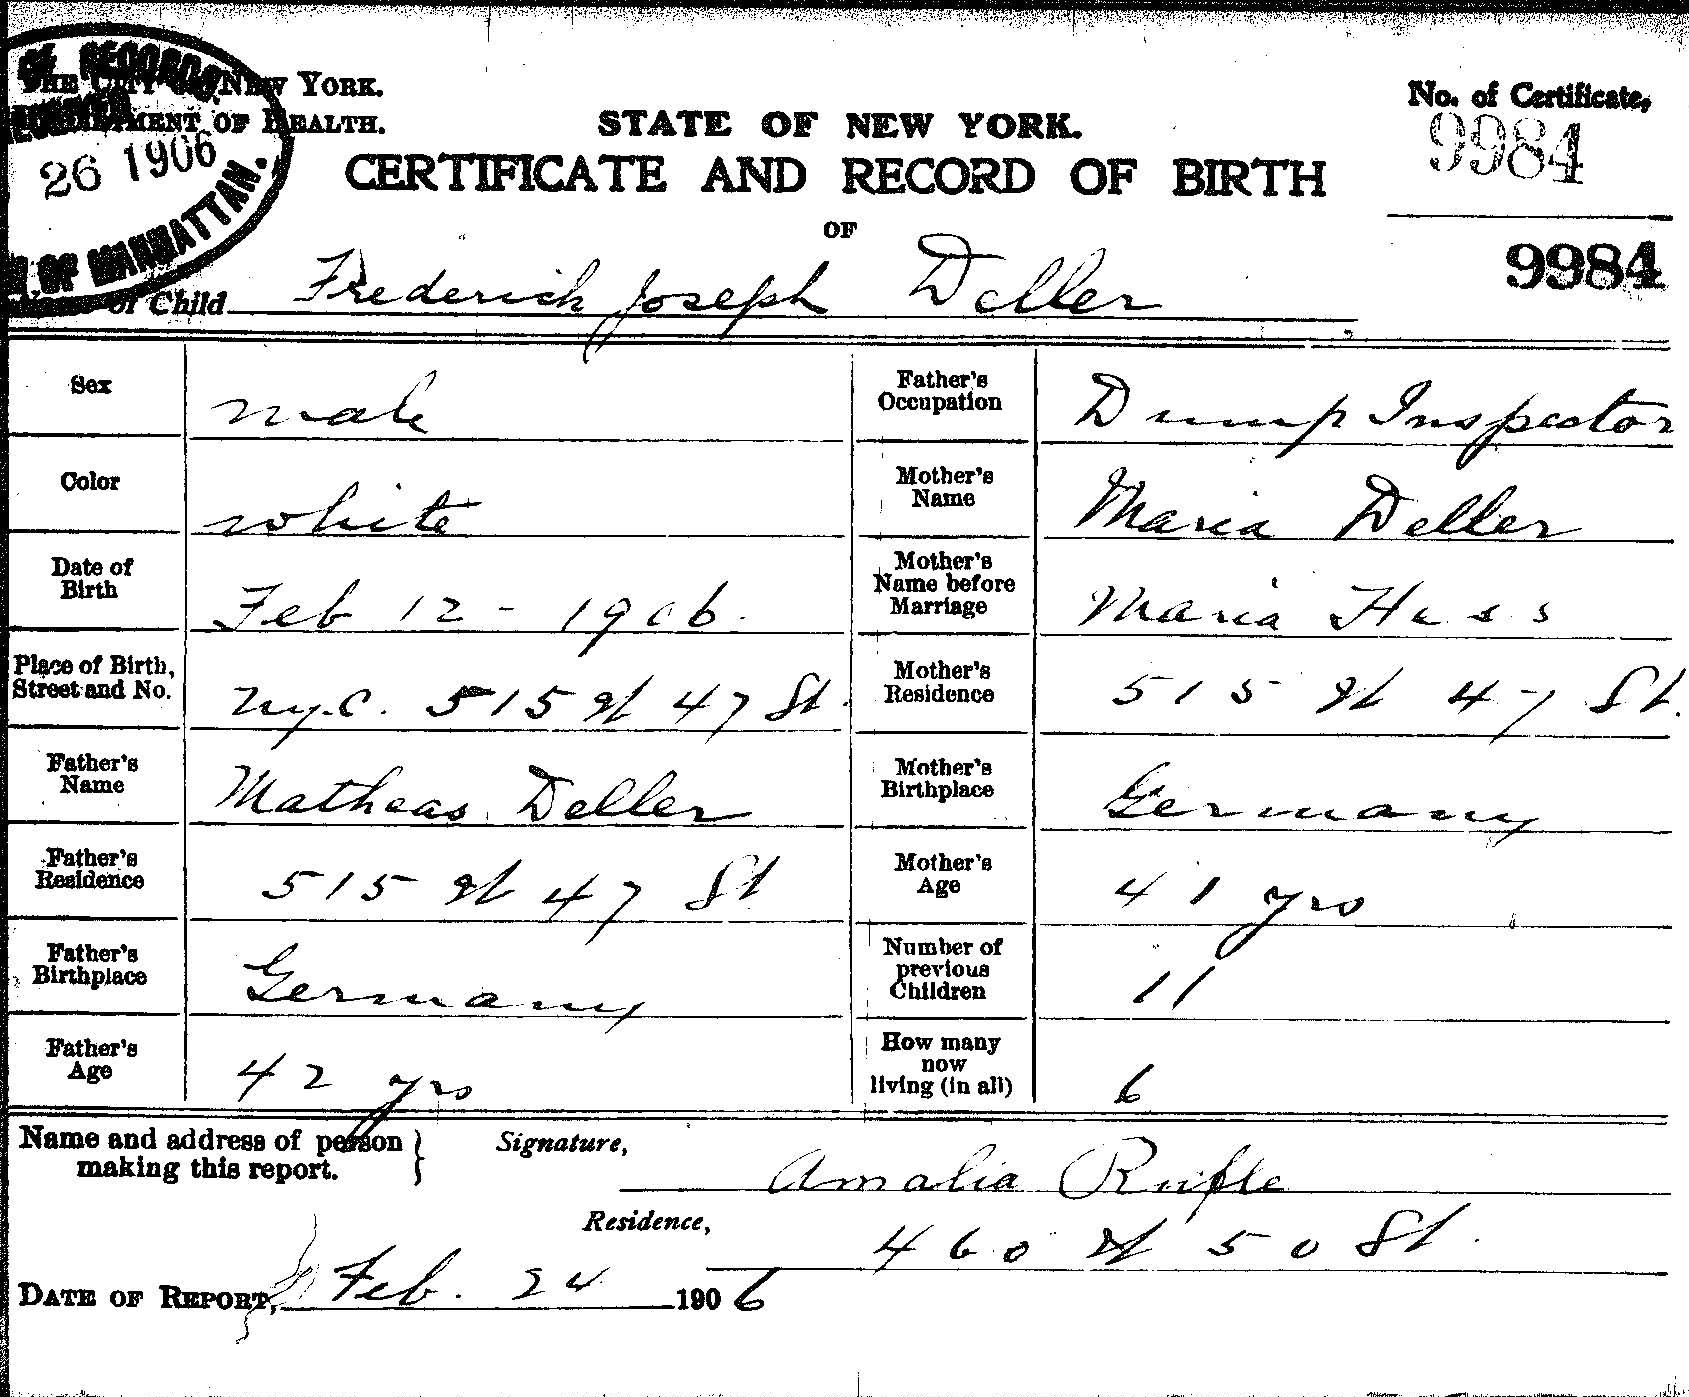 THE CITY OF NEW YORK.
DEPARTMENT OF HEALTH.
OF RECORDS
26 1906
OF MANHATTAN.
STATE OF NEW YORK.
CERTIFICATE AND RECORD OF BIRTH
OF
No. of Certificate,
9984
9984
Name of Child Frederick Joseph Deller
Sex male
Father's Occupation Dump Inspector
Color white
Mother's Name Maria Deller
Date of Birth Feb 12 - 1906.
Mother's Name before Marriage Maria Hess
Place of Birth, Street and No. N.Y.C. 515 W 47 St.
Mother's Residence 515 W 47 St.
Father's Name Matheas Deller
Mother's Birthplace Germany
Father's Residence 515 W 47 St
Mother's Age 41 yrs
Father's Birthplace Germany
Number of previous Children 11
Father's Age 42 yrs
How many now living (in all) 6
Name and address of person making this report.
Signature, Amalia
Residence, 460 W 50 St.
DATE OF REPORT, Feb. 24 1906